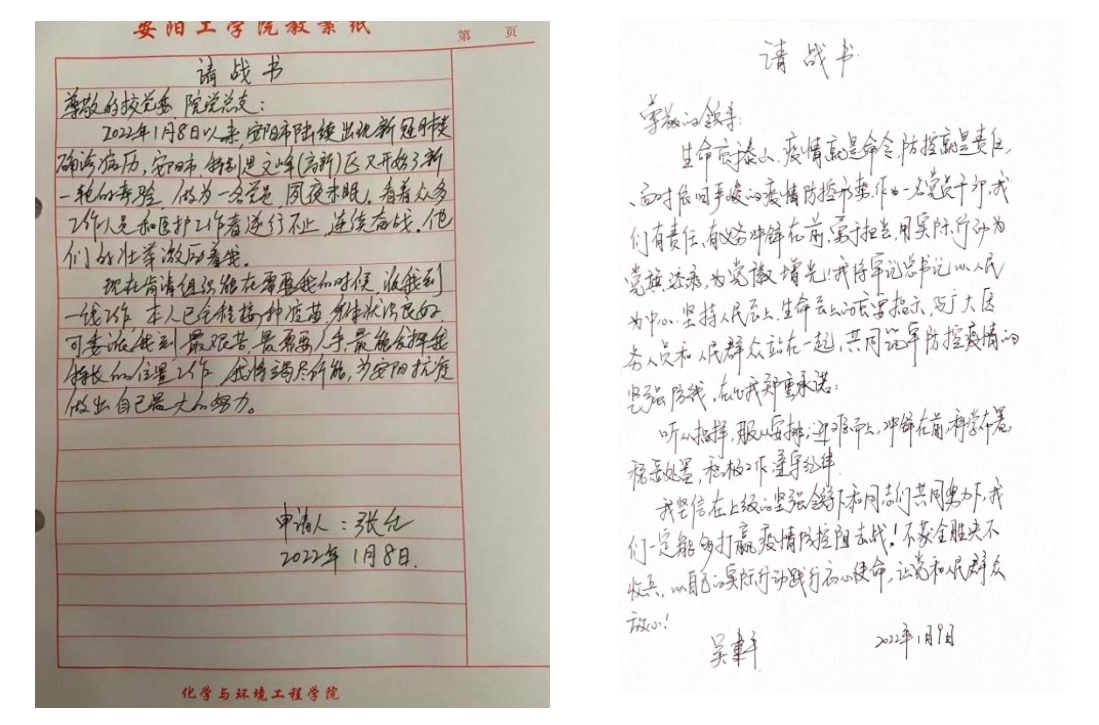 安阳工学院教案纸
第 页
请战书
尊敬的校党委 院党总支：
2022年1月8日以来，安阳市陆续出现新冠肺炎
确诊病历，安阳市，特别是文峰（高新）区又开始了新
一轮的考验，做为一名党员，夙夜未眠，看着众多
工作人员和医护工作者逆行不止，连续奋战，他
们的壮举激励着我。
现在肯请组织能在需要我的时候，派我到
一线工作，本人已全程接种疫苗，身体状况良好
可委派我到最艰苦，最需要人手，最能发挥我
特长的位置工作，我将竭尽所能，为安阳抗疫
做出自己最大的努力。
申请人：张
2022年1月8日.
化学与环境工程学院
请战书
尊敬的领导：
生命重于泰山，疫情就是命令，防控就是责任，
面对依旧严峻的疫情防控形势，作为一名党员干部，我
们有责任、有义务冲锋在前，勇于担当，用实际行动为
党旗添彩，为党徽增光！我将牢记总书记以人民
为中心，坚持人民至上，生命至上的重要指示，与广大医
务人员和人民群众站在一起，共同筑牢防控疫情的
坚强防线，在此我郑重承诺：
听从指挥，服从安排；迎难而上，冲锋在前，科学布置
稳妥处置，积极工作 遵守纪律.
我坚信在上级的坚强领导下和同志们共同努力下，我
们一定能够打赢疫情防控阻击战！不获全胜决不
收兵，以自己的实际行动践行初心使命，让党和人民群众
放心！
吴
2022年1月9日